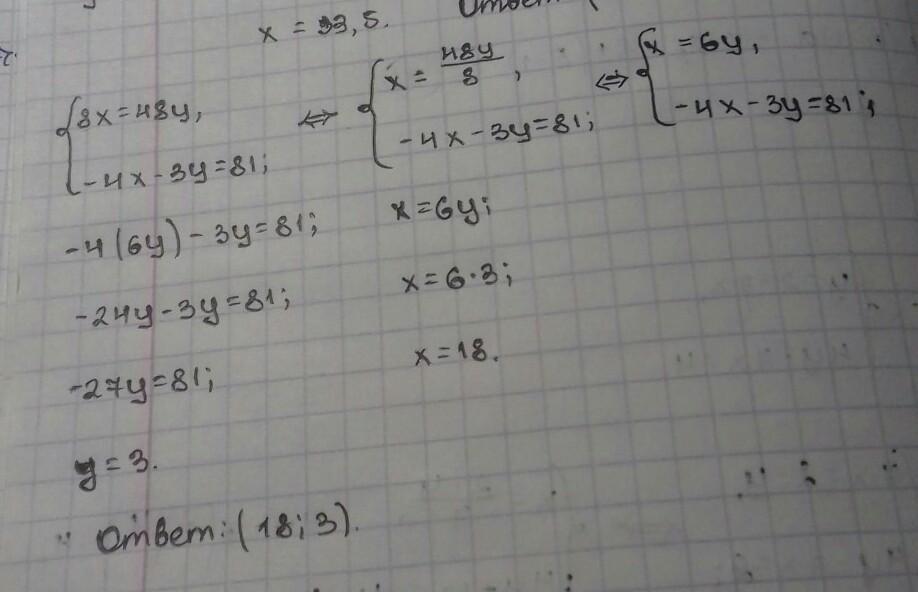 x = 33,5. Ответ: (
{8x=48y, ⇔ {x=48y/8, ⇔ {x=6y,
-4x-3y=81; -4x-3y=81; -4x-3y=81;
-4(6y)-3y=81; x=6y;
-24y-3y=81; x=6·3;
-27y=81; x=18.
y=3.
Ответ: (18;3).